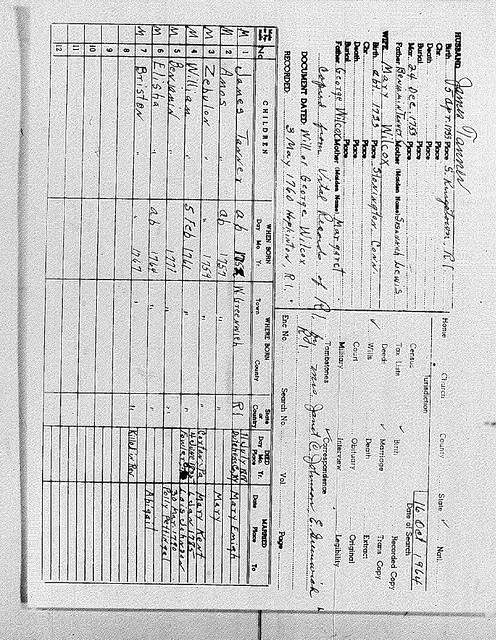 HUSBAND James Tanner
Birth 15 Apr. 1735 Place S. Kingstown, R.I.
Chr. Place
Death Place
Burial Place
Mar. 24 Dec. 1753 Place
Father Benjamin Tanner Mother (Maiden Name) Susannah Lewis
WIFE Mary Wilcox
Birth Abt. 1733 Place Stonington Conn.
Chr. Place
Death Place
Burial Place
Father George Wilcox Mother (Maiden Name) Margaret
Copied from Vital Records of R.I. by Mrs. Janet C. Johnson, E. Greenwich R.I.
DOCUMENT DATED: Will of George Wilcox
RECORDED: 3 May 1760 Hopkinton R.I.
Home Church County State Natl.
Jurisdiction
Census
Tax Lists
Deeds
Wills
Court
Military
Tombstones
Birth
Marriage
Death
Obituary
Interview
Correspondence
16 Oct 1964
Date of Search
Recorded Copy
Trans. Copy
Extract
Original
Legibility
Enc No. Search No. Vol Page
No. CHILDREN WHEN BORN Day Mo. Yr. WHERE BORN Town County State or Country DIED Day Mo. Yr. Place MARRIED Date Place To
M 1 James Tanner ab W. Greenwich RI 11 July Mary Emigh
M 2 Amos " ab 1757 " " Mary
M 3 Zebulon " 1759 " " Mary Kent
M 4 William " 5 Feb 1761 " "
M 5 Benjamin " 1771 " " 30 Mar. 1780
M 6 Elisha " ab 1764 " " Abigail
M 7 Briston " 1767 " " Killed in Rev.
8
9
10
11
12